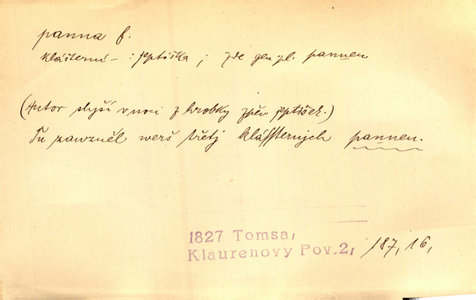 panna f.
klášterní – : jeptiška ; zde gen. pl. pannen
(Autor slyší v noci z hrobky zpěv jeptišek.)
Tu zawzněl werš třetj kláffternjch pannen.
1827 Tomsa,
Klaurenovy Pov. 2, 187, 16,